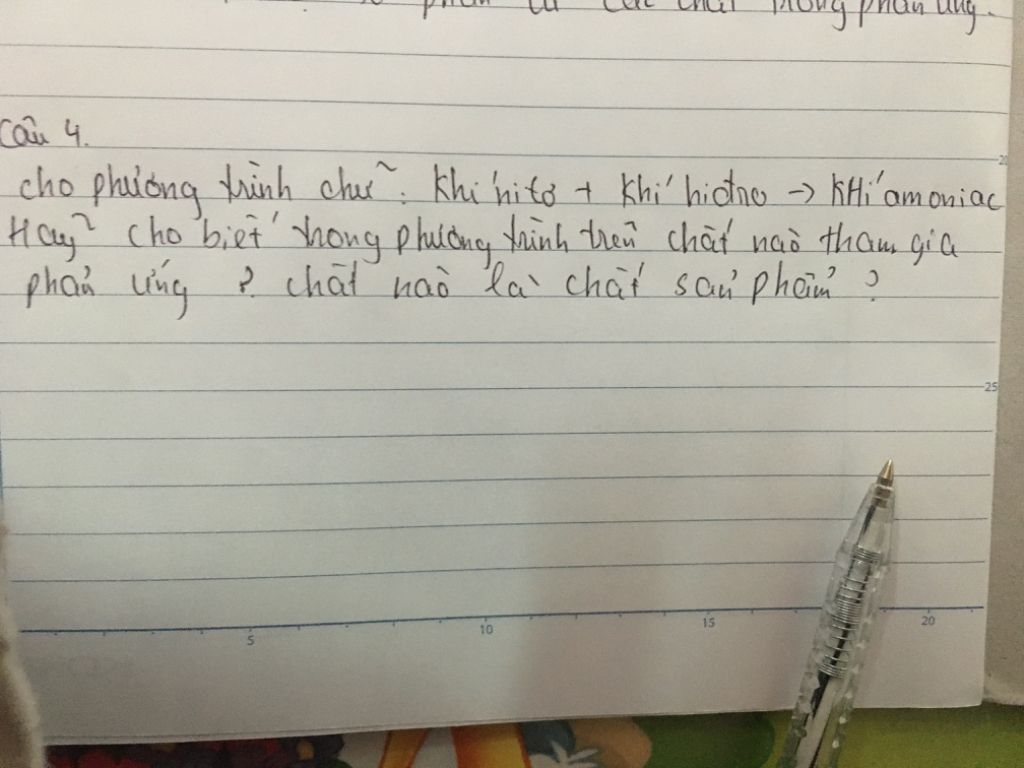 phân tử các chất trong phản ứng.
Câu 4.
cho phương trình chữ: Khí nitơ + Khí hiđro → KHí amoniac
Hãy cho biết trong phương trình trên chất nào tham gia
phản ứng ? chất nào là chất sản phẩm ?
20
25
5 10 15 20